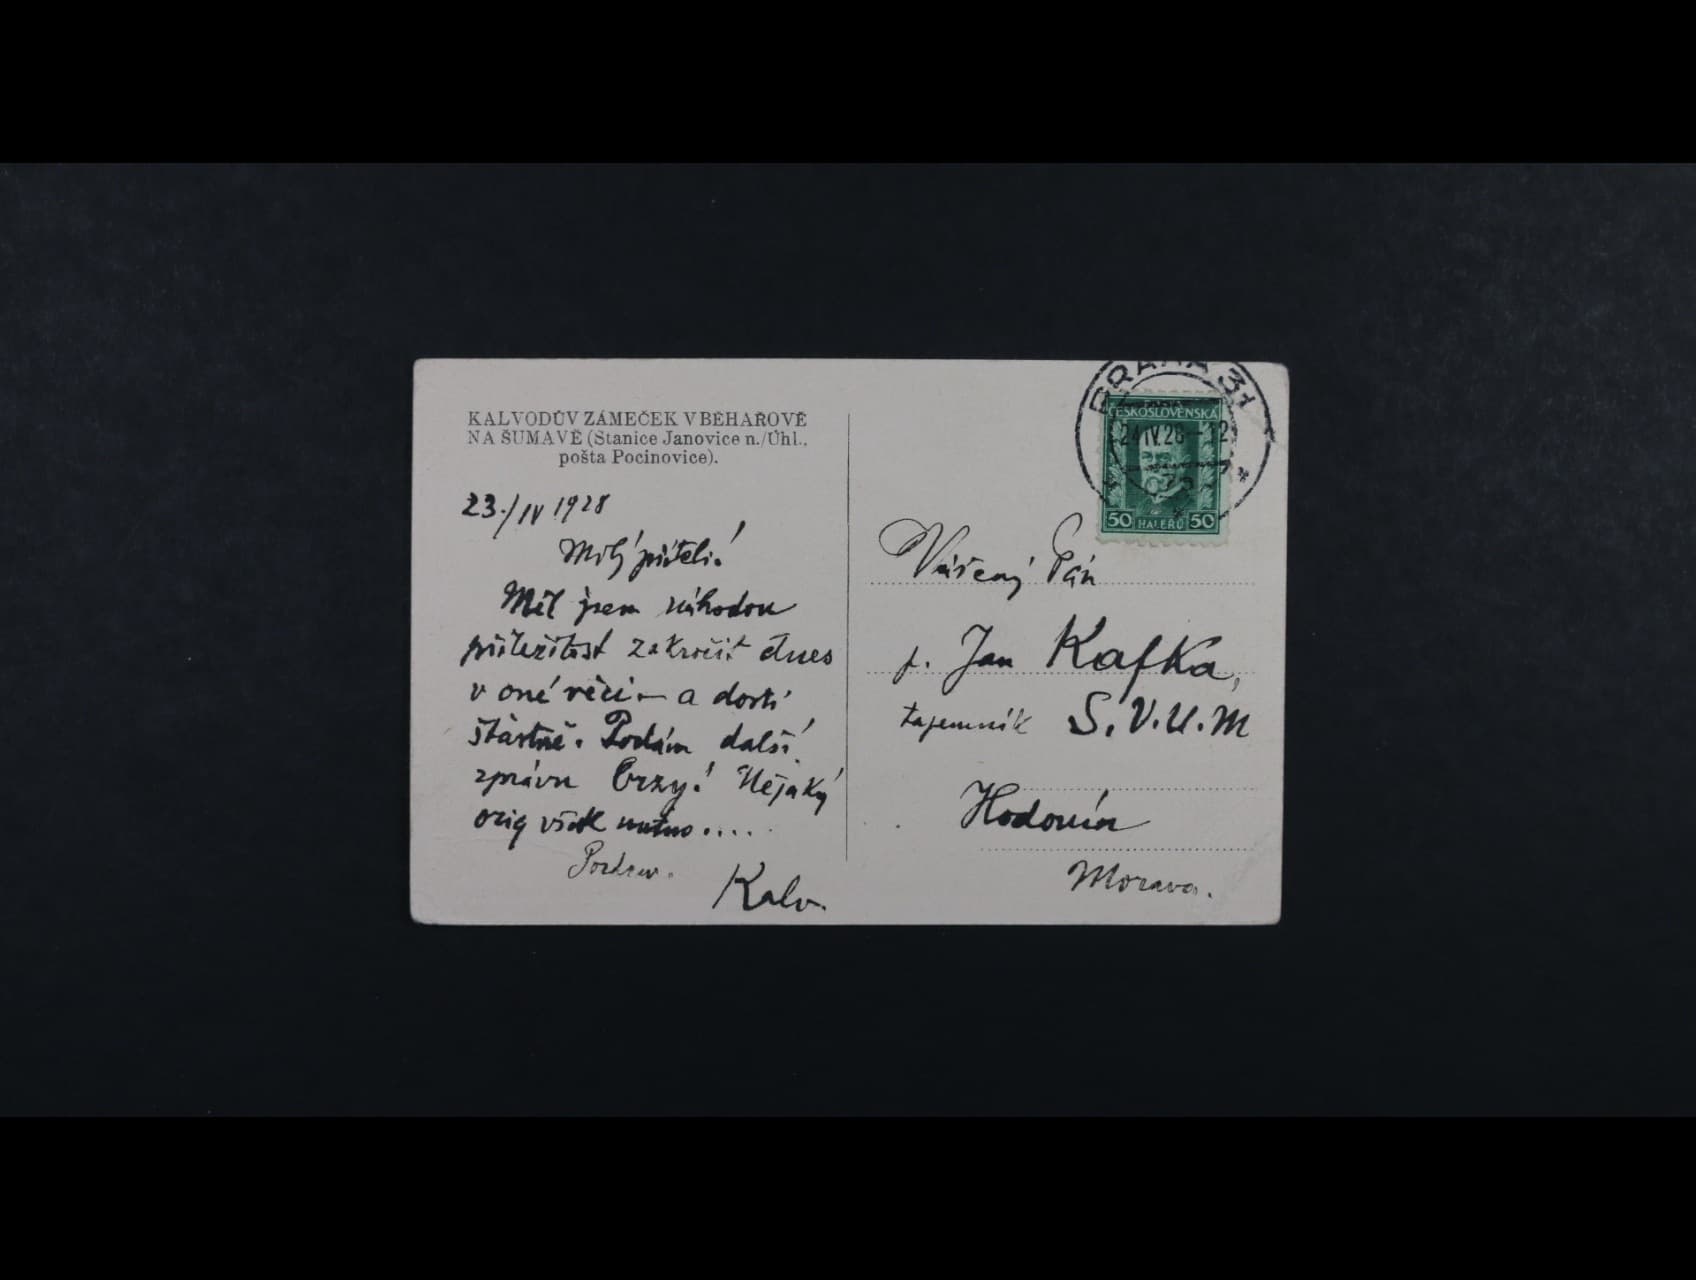 KALVODŮV ZÁMEČEK V BĚHAŘOVĚ
NA ŠUMAVĚ (Stanice Janovice n./Úhl.,
pošta Pocinovice).
23./IV 1928
Milý příteli!
Měl jsem náhodou
příležitost zakročit dnes
v oné věci – a dosti
šťastně. Podám další
zprávu brzy! Nějaký
orig však nutno....
Pozdrav.
Kalv.
PRAHA 31
24.IV.28–12
ČESKOSLOVENSKÁ
50 HALÉŘŮ 50
Vážený Pán
p. Jan Kafka,
tajemník S.V.U.M
Hodonín
Morava.